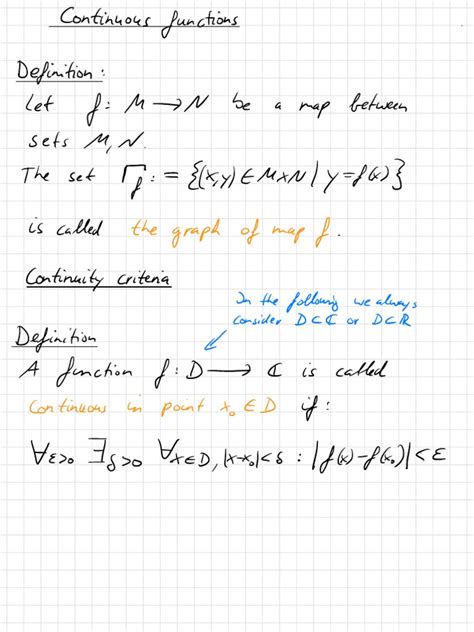 Continuous functions
Definition:
Let f: M → N be a map between
sets M, N.
The set Γ_f := {(x,y) ∈ M×N | y=f(x)}
is called the graph of map f.
Continuity criteria
In the following we always
consider D⊂ℂ or D⊂ℝ
Definition
A function f: D → ℂ is called
continuous in point x₀ ∈ D if:
∀ε>0 ∃δ>0 ∀x∈D, |x-x₀|<δ : |f(x)-f(x₀)|<ε